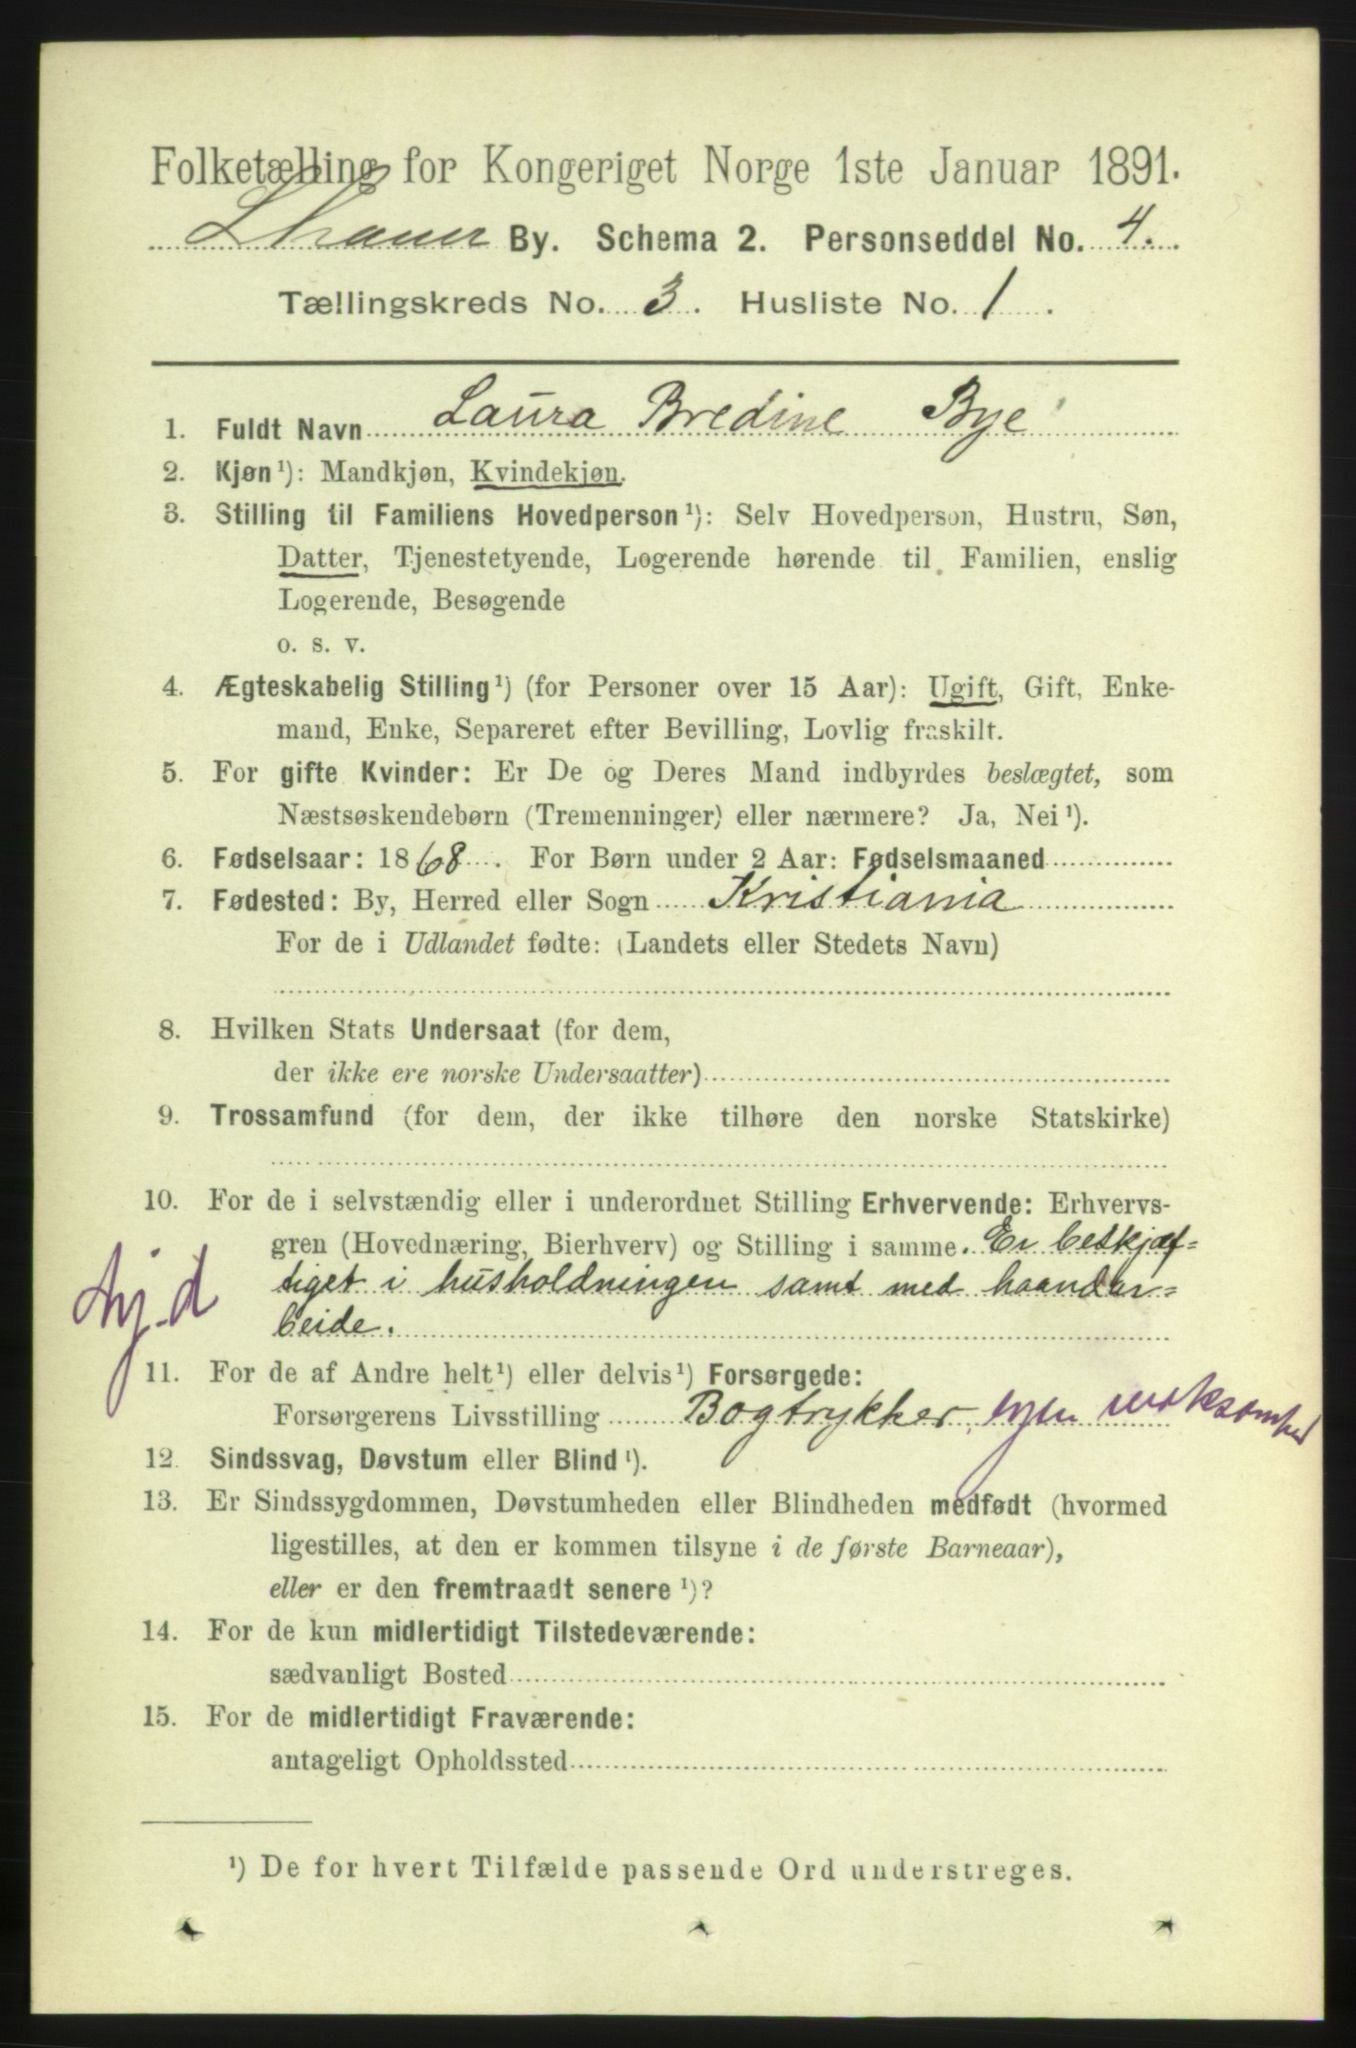 Folketælling for Kongeriget Norge 1ste Januar 1891.
Lhamer By. Schema 2. Personseddel No. 4.
Tællingskreds No. 3. Husliste No. 1.
1. Fuldt Navn Laura Bredine Bye
2. Kjøn¹): Mandkjøn, Kvindekjøn.
3. Stilling til Familiens Hovedperson¹): Selv Hovedperson, Hustru, Søn,
Datter, Tjenestetyende, Logerende hørende til Familien, enslig
Logerende, Besøgende
o. s. v.
4. Ægteskabelig Stilling¹) (for Personer over 15 Aar): Ugift, Gift, Enke-
mand, Enke, Separeret efter Bevilling, Lovlig fraskilt.
5. For gifte Kvinder: Er De og Deres Mand indbyrdes beslægtet, som
Næstsøskendebørn (Tremenninger) eller nærmere? Ja, Nei¹).
6. Fødselsaar: 1868. For Børn under 2 Aar: Fødselsmaaned
7. Fødested: By, Herred eller Sogn Kristiania
For de i Udlandet fødte: (Landets eller Stedets Navn)
8. Hvilken Stats Undersaat (for dem,
der ikke ere norske Undersaatter)
9. Trossamfund (for dem, der ikke tilhøre den norske Statskirke)
10. For de i selvstændig eller i underordnet Stilling Erhvervende: Erhvervs-
gren (Hovednæring, Bierhverv) og Stilling i samme. Er beskjæf=
tiget i husholdningen samt med haandar=
beide.
11. For de af Andre helt¹) eller delvis¹) Forsørgede:
Forsørgerens Livsstilling Bogtrykker, egen
12. Sindssvag, Døvstum eller Blind¹).
13. Er Sindssygdommen, Døvstumheden eller Blindheden medfødt (hvormed
ligestilles, at den er kommen tilsyne i de første Barneaar),
eller er den fremtraadt senere¹)?
14. For de kun midlertidigt Tilstedeværende:
sædvanligt Bosted
15. For de midlertidigt Fraværende:
antageligt Opholdssted
¹) De for hvert Tilfælde passende Ord understreges.